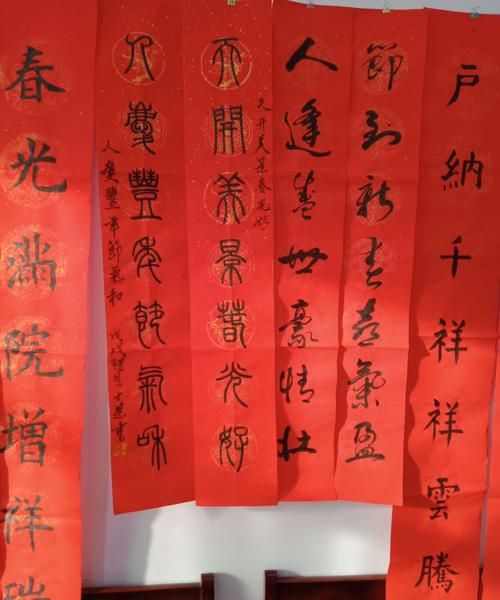 戶納千祥祥雲騰
節到新春喜氣盈
人逢盛世豪情壯
天开美景春光好
天開美景春光好
人慶豐年節氣和
人慶豐年節氣和 戊戌 月
春光滿院增祥瑞